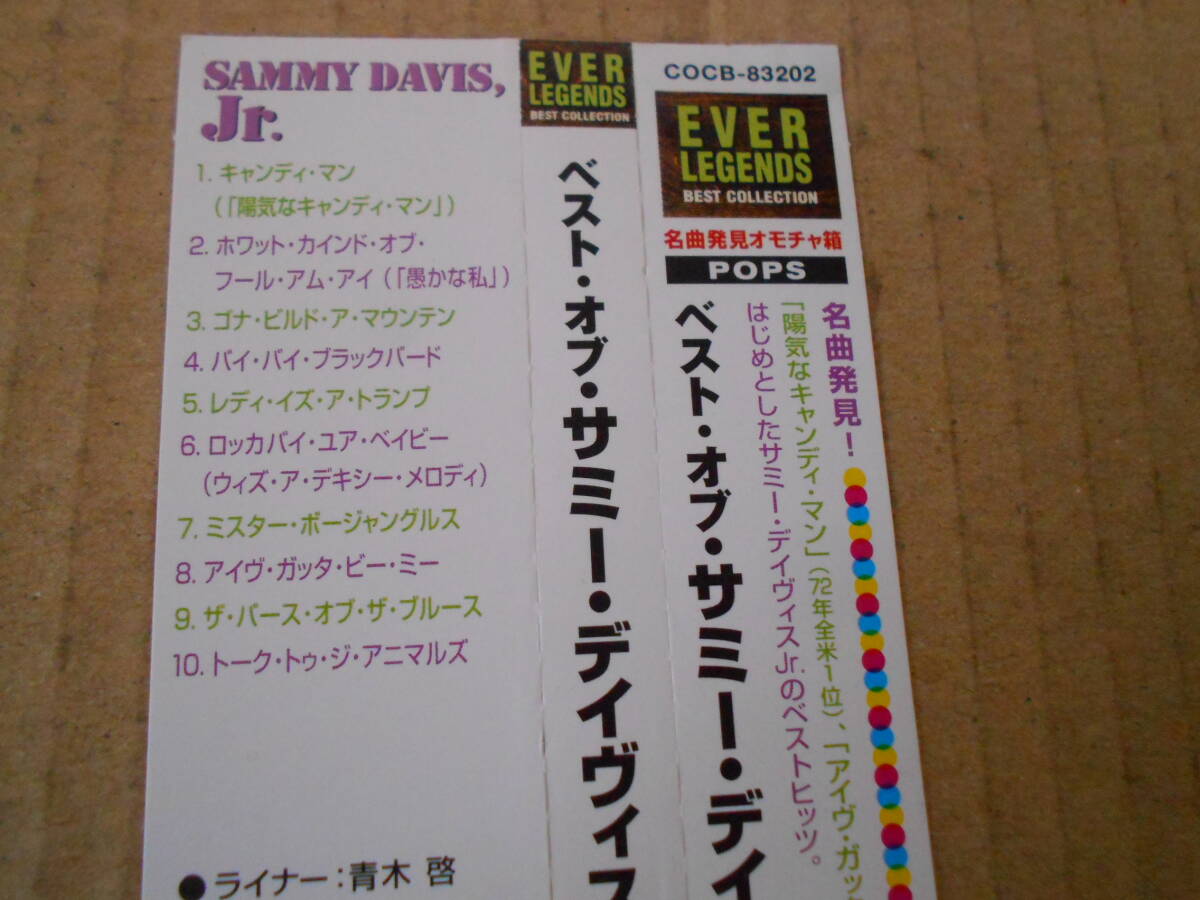 SAMMY DAVIS,
Jr.
1. キャンディ・マン
(「陽気なキャンディ・マン」)
2. ホワット・カインド・オブ・
フール・アム・アイ (「愚かな私」)
3. ゴナ・ビルド・ア・マウンテン
4. バイ・バイ・ブラックバード
5. レディ・イズ・ア・トランプ
6. ロッカバイ・ユア・ベイビー
(ウィズ・ア・デキシー・メロディ)
7. ミスター・ボージャングルス
8. アイヴ・ガッタ・ビー・ミー
9. ザ・バース・オブ・ザ・ブルース
10. トーク・トゥ・ジ・アニマルズ
●ライナー:青木 啓
EVER
LEGENDS
BEST COLLECTION
ベスト・オブ・サミー・デイヴィス
COCB-83202
EVER
LEGENDS
BEST COLLECTION
名曲発見オモチャ箱
POPS
ベスト・オブ・サミー・デイ
名曲発見!
「陽気なキャンディ・マン」(72年全米1位)、「アイヴ・ガッ
はじめとしたサミー・デイヴィスJr.のベストヒッツ。